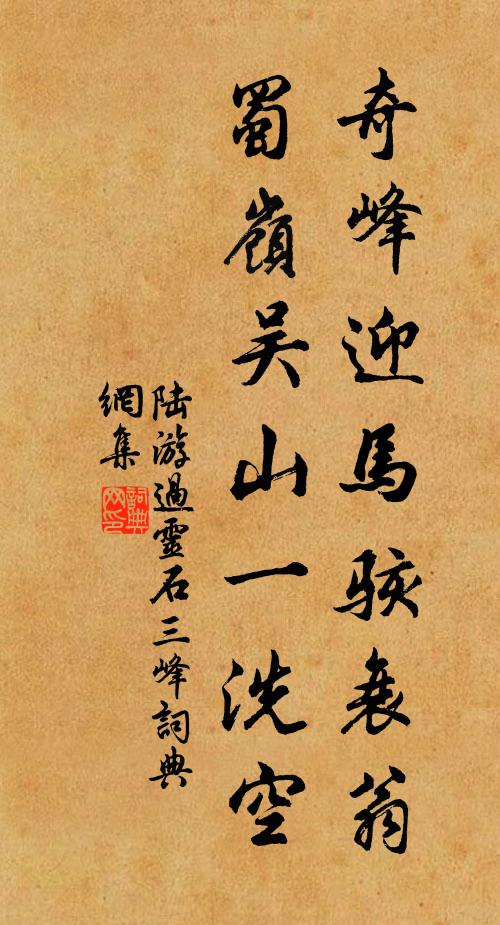 奇峰迎馬駭衰翁
蜀嶺吴山一洗空
陆游過靈石三峰詞典
網集
詞典
网印